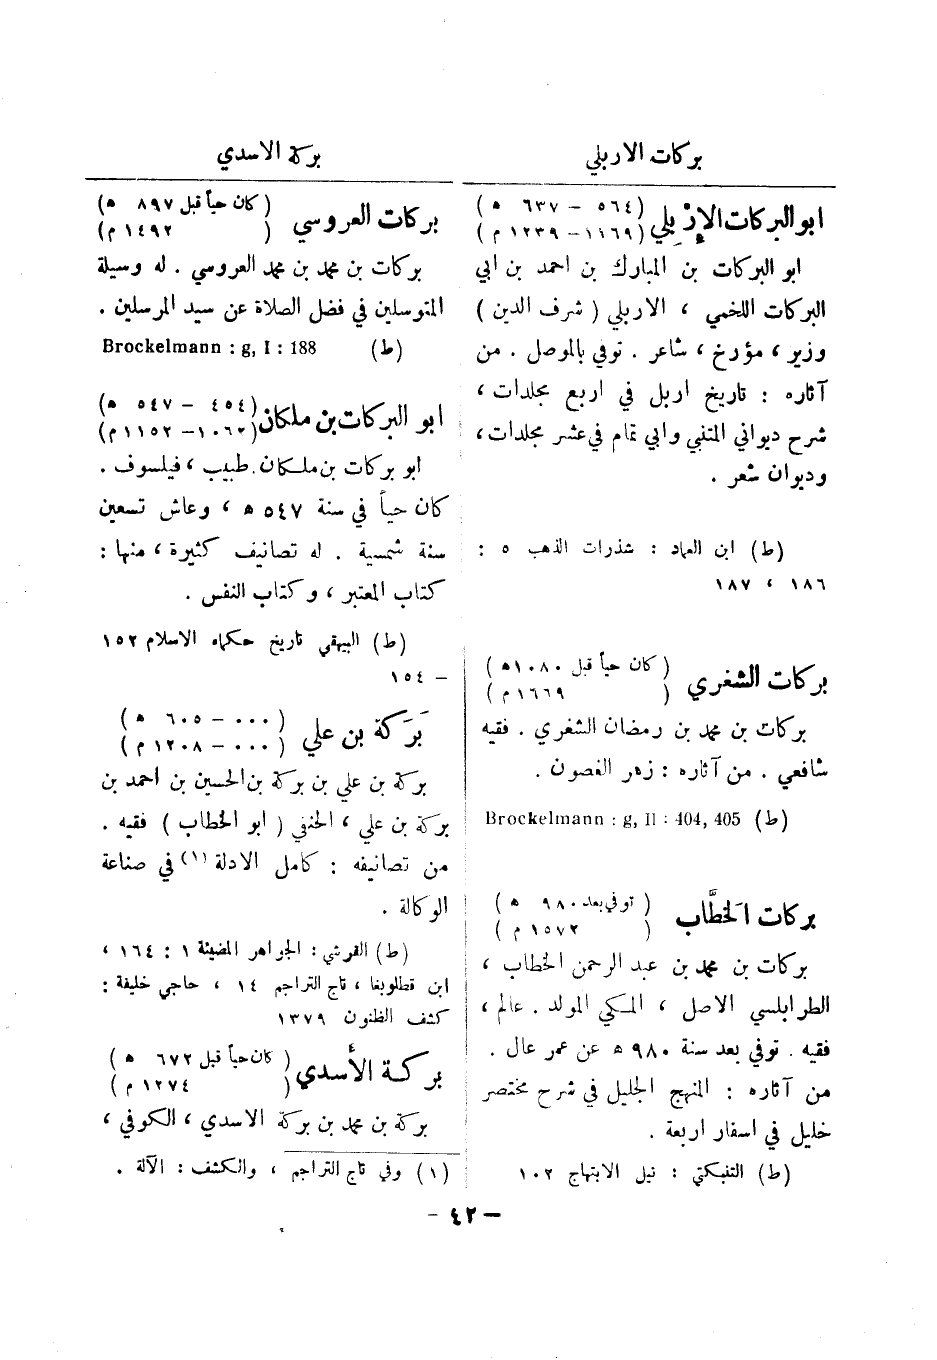 بركات الاربلي
بركة الاسدي
ابو البركات الإِرْبِلي (٥٦٤ – ٦٣٧ هـ)
(١١٦٩ – ١٢٣٩ م)
ابو البركات بن المبارك بن احمد بن ابي
البركات اللخمي ، الاربلي ( شرف الدين )
وزير ، مؤرخ ، شاعر . توفي بالموصل . من
آثاره : تاريخ اربل في اربع مجلدات ،
شرح ديواني المتنبي وابي تمام في عشر مجلدات،
وديوان شعر .
(ط) ابن العماد : شذرات الذهب ٥ :
١٨٦ ، ١٨٧
بركات الشغري ( كان حياً قبل ١٠٨٠ هـ )
( ١٦٦٩ م )
بركات بن محمد بن رمضان الشغري . فقيه
شافعي . من آثاره : زهر الغصون .
(ط) Brockelmann : g, II : 404, 405
بركات الخطَّاب ( توفي بعد ٩٨٠ هـ )
( ١٥٧٢ م )
بركات بن محمد بن عبد الرحمن الخطاب ،
الطرابلسي الاصل ، المكي المولد . عالم ،
فقيه . توفي بعد سنة ٩٨٠ هـ عن عمر عال .
من آثاره : المنهج الجليل في شرح مختصر
خليل في اسفار اربعة .
(ط) التنبكتي : نيل الابتهاج ١٠٢
بركات العروسي ( كان حياً قبل ٨٩٧ هـ )
( ١٤٩٢ م )
بركات بن محمد بن محمد العروسي . له وسيلة
المتوسلين في فضل الصلاة عن سيد المرسلين .
(ط) Brockelmann : g, I : 188
ابو البركات بن ملكان (٤٥٤ – ٥٤٧ هـ)
(١٠٦٢ – ١١٥٢ م)
ابو بركات بن ملكان . طبيب ، فيلسوف .
كان حياً في سنة ٥٤٧ هـ ، وعاش تسعين
سنة شمسية . له تصانيف كثيرة ، منها :
كتاب المعتبر ، وكتاب النفس .
(ط) البيهقي تاريخ حكماء الاسلام ١٥٢
– ١٥٤
بَرَكَة بن علي ( ٠٠٠ – ٦٠٥ هـ )
( ٠٠٠ – ١٢٠٨ م )
بركة بن علي بن بركة بن الحسين بن احمد بن
بركة بن علي ، الحنفي ( ابو الخطاب ) فقيه .
من تصانيفه : كامل الادلة (١) في صناعة
الوكالة .
(ط) القرشي : الجواهر المضيئة ١ : ١٦٤ ،
ابن قطلوبغا ، تاج التراجم ١٤ ، حاجي خليفة :
كشف الظنون ١٣٧٩
بركة الأسدي ( كان حياً قبل ٦٧٢ هـ )
( ١٢٧٤ م )
بركة بن محمد بن بركة الاسدي ، الكوفي ،
(١) وفي تاج التراجم ، والكشف : الآلة .
– ٤٢ –